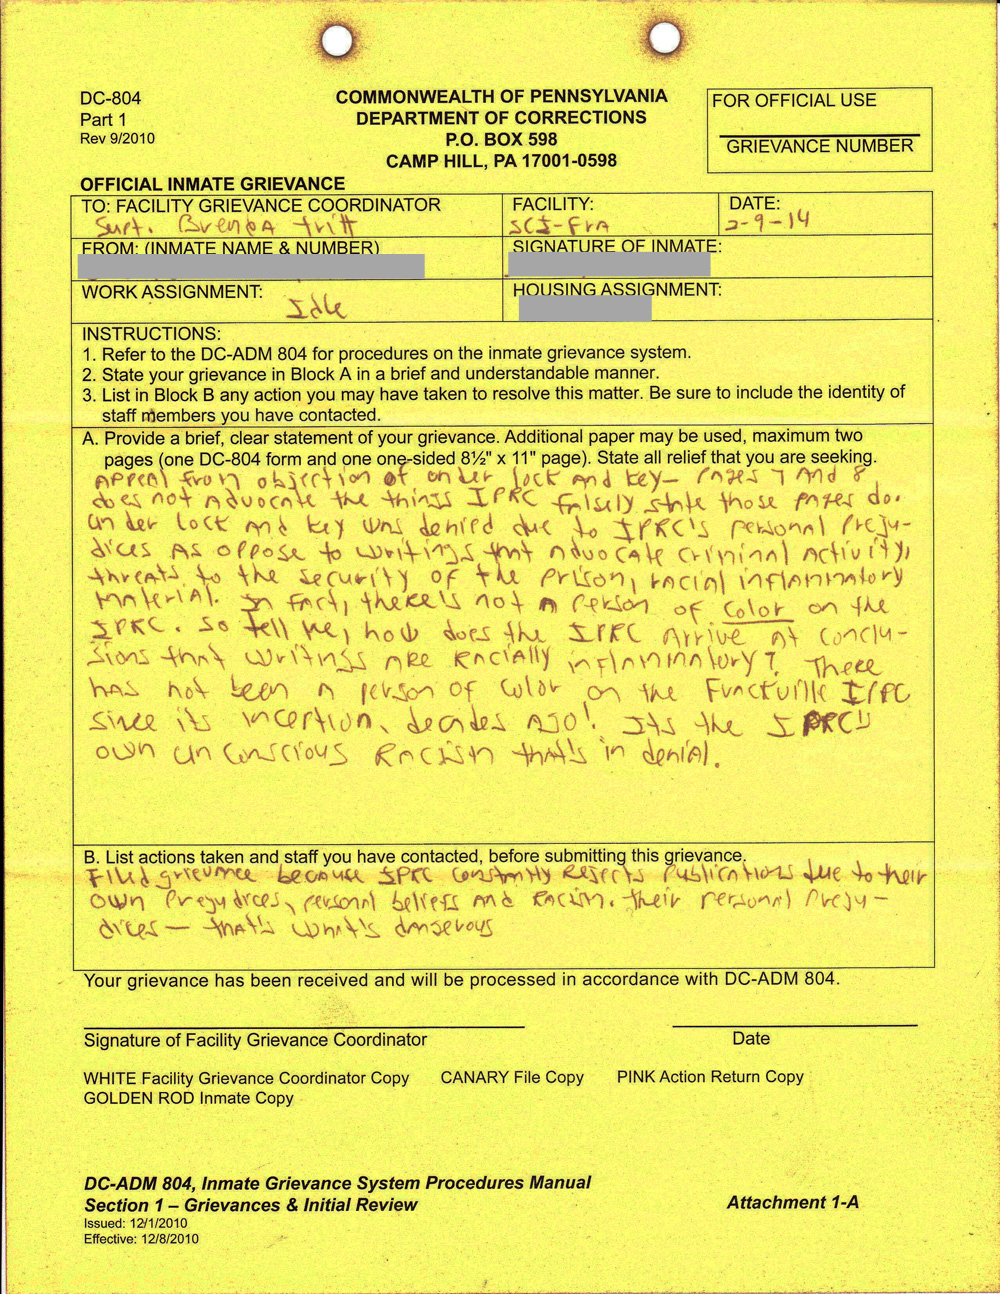 DC-804
Part 1
Rev 9/2010
COMMONWEALTH OF PENNSYLVANIA
DEPARTMENT OF CORRECTIONS
P.O. BOX 598
CAMP HILL, PA 17001-0598
FOR OFFICIAL USE
GRIEVANCE NUMBER
OFFICIAL INMATE GRIEVANCE
TO: FACILITY GRIEVANCE COORDINATOR
Supt. Brenda tritt
FACILITY:
SCI-FrA
DATE:
2-9-14
FROM: (INMATE NAME & NUMBER)
SIGNATURE OF INMATE:
WORK ASSIGNMENT:
Idle
HOUSING ASSIGNMENT:
INSTRUCTIONS:
1. Refer to the DC-ADM 804 for procedures on the inmate grievance system.
2. State your grievance in Block A in a brief and understandable manner.
3. List in Block B any action you may have taken to resolve this matter. Be sure to include the identity of
staff members you have contacted.
A. Provide a brief, clear statement of your grievance. Additional paper may be used, maximum two
pages (one DC-804 form and one one-sided 8½" x 11" page). State all relief that you are seeking.
Appeal from objection of under lock and key - Pages 7 and 8
does not advocate the things IPRC falsely state those pages do.
Under lock and key was denied due to IPRC's personal Preju-
dices as oppose to writings that advocate criminal activity,
threats to the security of the prison, racial inflammatory
material. In fact, there's not a person of color on the
IPRC. So tell me, how does the IPRC arrive at conclu-
sions that writings are racially inflammatory? There
has not been a person of color on the Frackville IPRC
since its inception, decades ago! Its the IPRC's
own unconscious racism that's in denial.
B. List actions taken and staff you have contacted, before submitting this grievance.
Filed grievance because IPRC constantly rejects publications due to their
own prejudices, personal beliefs and racism. their personal preju-
dices — that's what's dangerous
Your grievance has been received and will be processed in accordance with DC-ADM 804.
Signature of Facility Grievance Coordinator
Date
WHITE Facility Grievance Coordinator Copy CANARY File Copy PINK Action Return Copy
GOLDEN ROD Inmate Copy
DC-ADM 804, Inmate Grievance System Procedures Manual
Section 1 – Grievances & Initial Review
Attachment 1-A
Issued: 12/1/2010
Effective: 12/8/2010